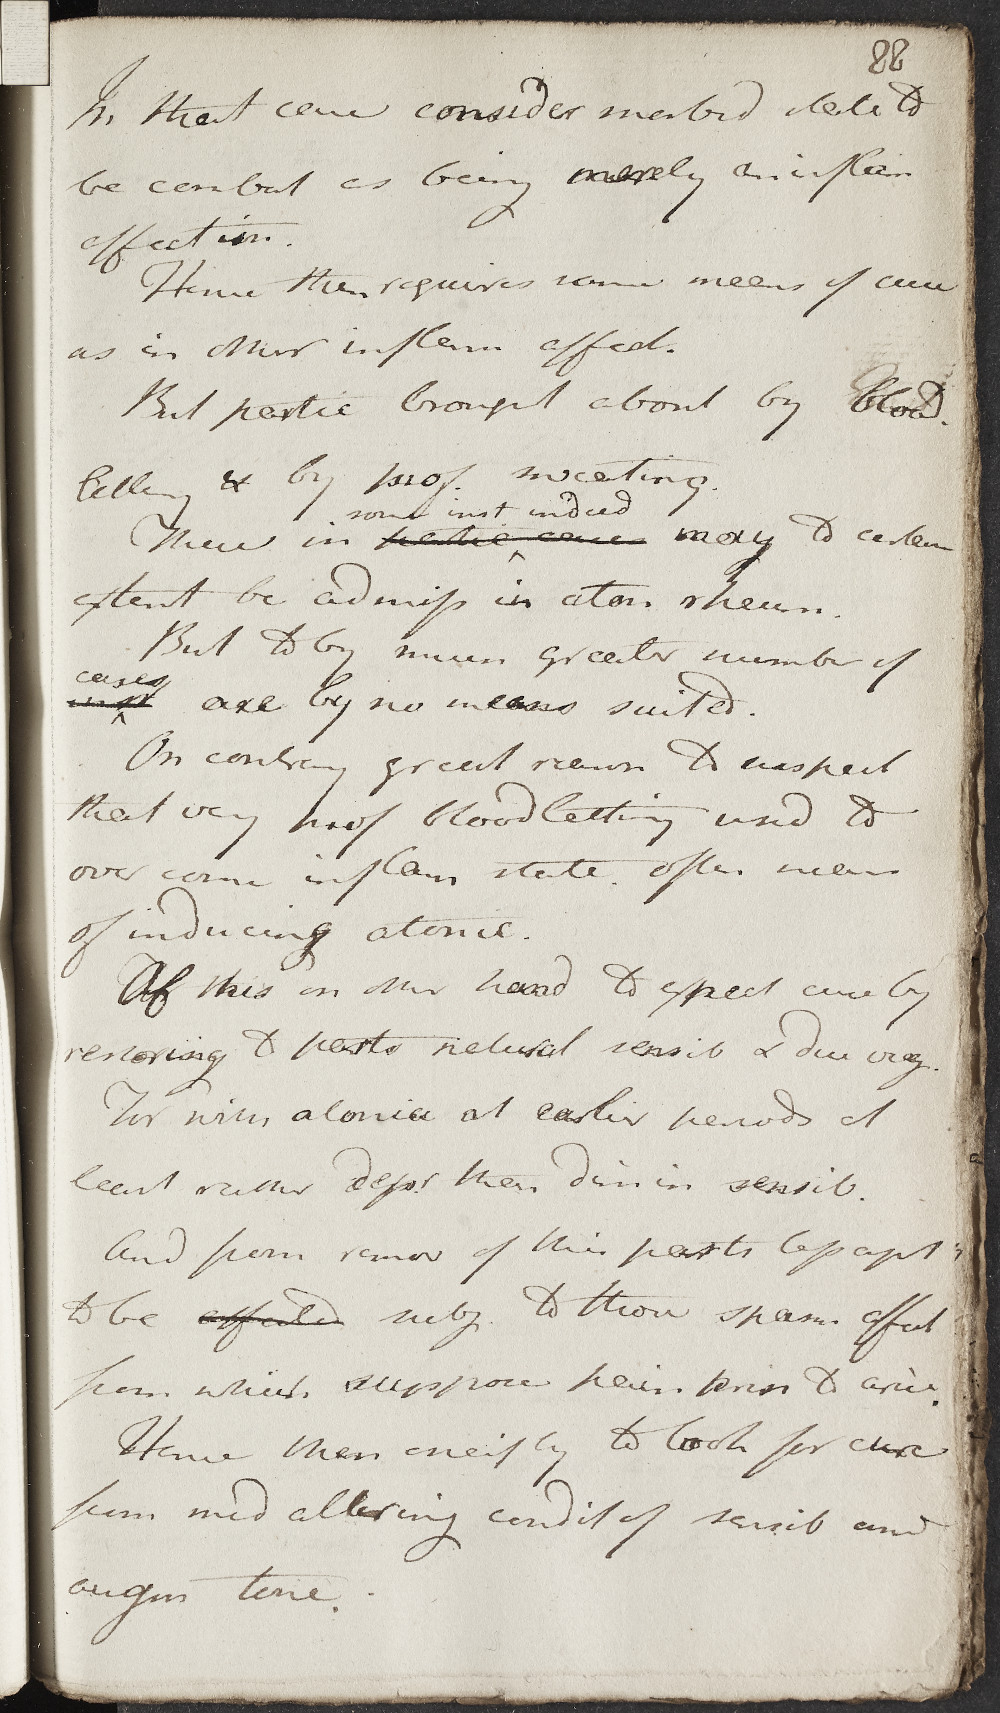 88
In that case consider morbid state to
be combat as being merely an inflam
affection.
Hence then requires same means of cure
as in other inflam affect.
But partic brought about by blood.
letting & by prof. sweating.
some inst indeed
These in partic cases may to certain
extent be admiss in aton rheum.
But to by much greater number of
cases
inst are by no means suited.
On contrary great reason to suspect
that very prof bloodletting used to
over come inflam state. often means
of inducing atonic.
Of this on other hand to expect cure by
restoring to parts natural sensib & due vig.
For with atonia at earlier periods at
least rather depr. than dimin sensib.
And from remov of this parts less apt
to be affected subj. to those spasm affect
from which suppose pain prin to arise.
Hence then chiefly to look for cure
from med altering condit of sensib and
augm tone.